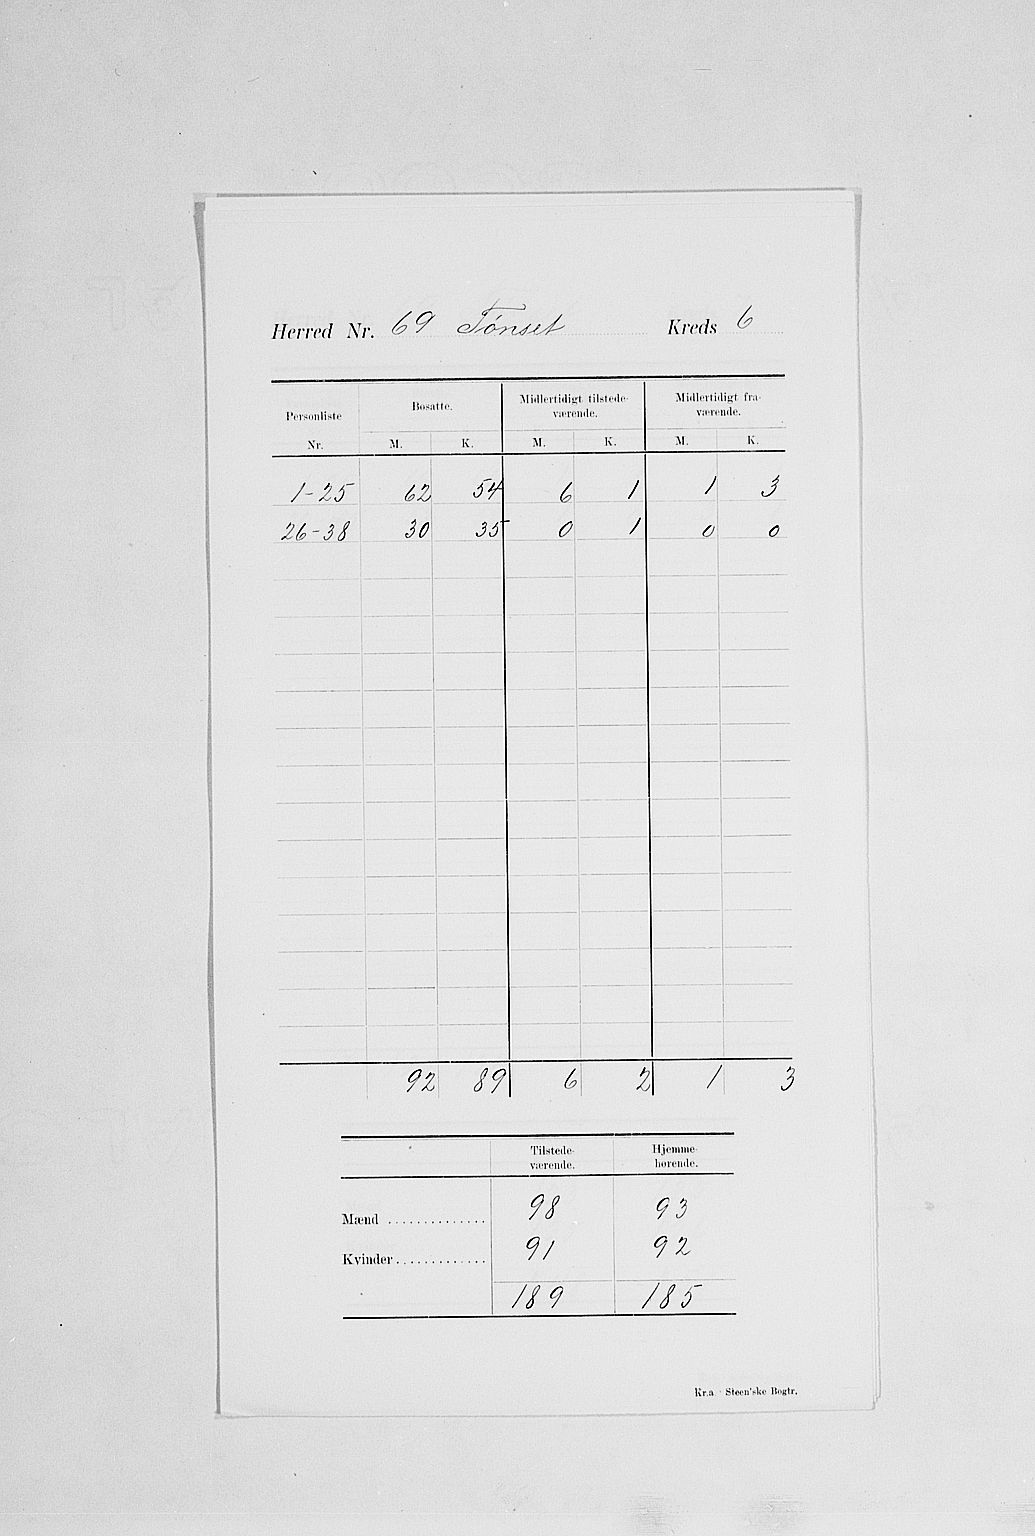 Herred Nr. 69 Tønset Kreds 6
Personliste Nr. Bosatte. Midlertidigt tilstede- værende. Midlertidigt fra- værende.
M. K. M. K. M. K.
1-25 62 54 6 1 1 3
26-38 30 35 0 1 0 0
92 89 6 2 1 3
Tilstede- værende. Hjemme- hørende.
Mænd .............. 98 93
Kvinder............. 91 92
189 185
Kr.a Steen'ske Bogtr.